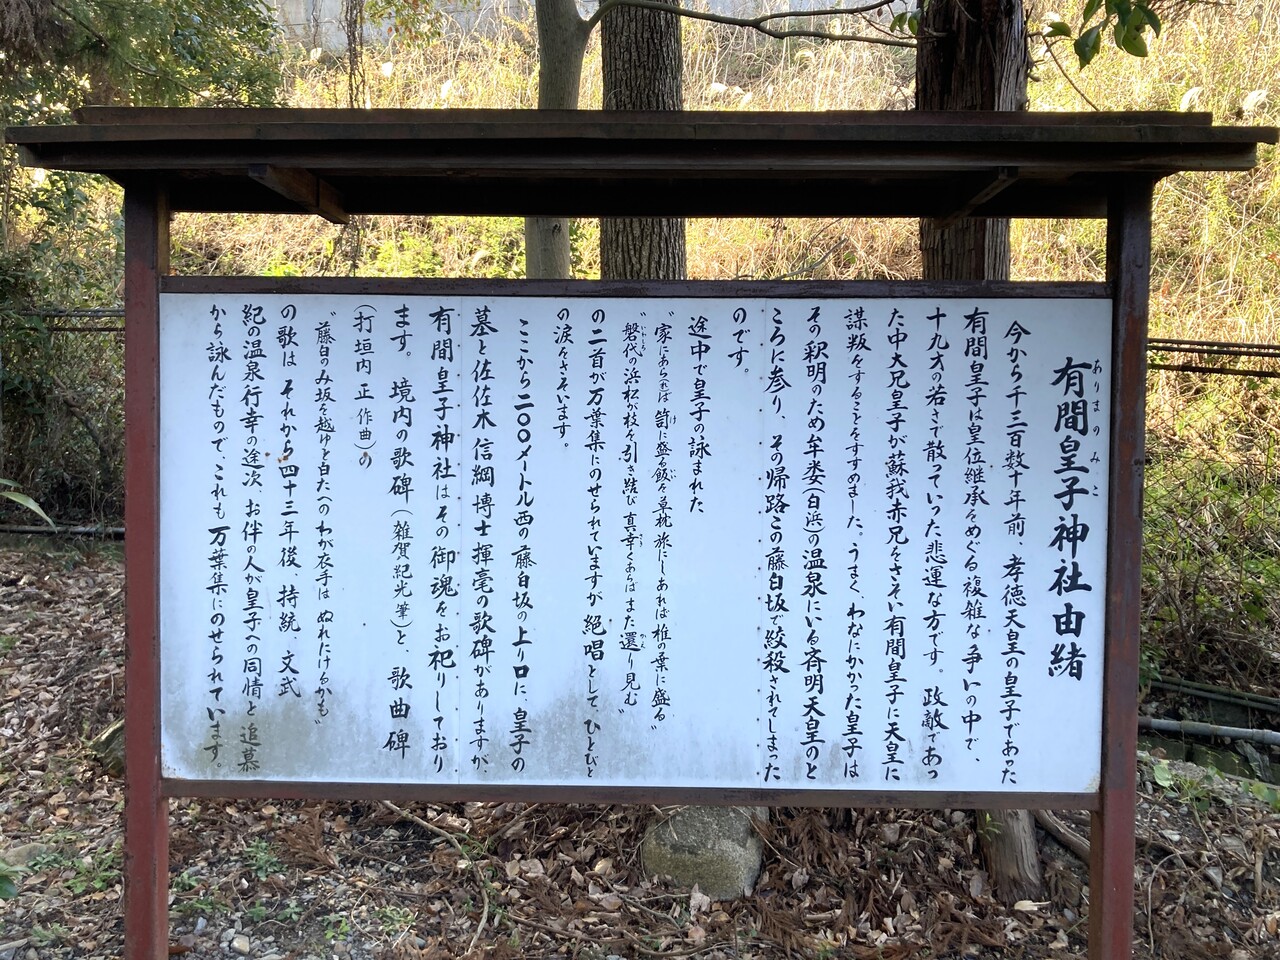 有間皇子神社由緒
ありまのみこ
今から千三百数十年前、孝徳天皇の皇子であった
有間皇子は皇位継承をめぐる複雑な争いの中で、
十九才の若さで散っていった悲運な方です。政敵であっ
た中大兄皇子が蘇我赤兄をさそい有間皇子に天皇に
謀叛をすることをすすめました。うまく、わなにかかった皇子は
その釈明のため牟婁(白浜)の温泉にいる斉明天皇のと
ころに参り、その帰路この藤白坂で絞殺されてしまった
のです。
途中で皇子の詠まれた
"家にあれば笥に盛る飯を草枕旅にしあれば椎の葉に盛る"
"磐代の浜松が枝を引き結び真幸くあらばまた還り見む"
の二首が万葉集にのせられていますが絶唱として、ひとびと
の涙をさそいます。
ここから二〇〇メートル西の藤白坂の上り口に、皇子の
墓と佐佐木信綱博士揮毫の歌碑がありますが、
有間皇子神社はその御魂をお祀りしており
ます。境内の歌碑(雑賀紀光筆)と、歌曲碑
(打垣内正作曲)の
"藤白のみ坂を越ゆと白たへのわが衣手はぬれにけるかも"
の歌は それから四十三年後、持統、文武
紀の温泉行幸の途次、お伴の人が皇子への同情と追慕
から詠んだもので、これも万葉集にのせられています。